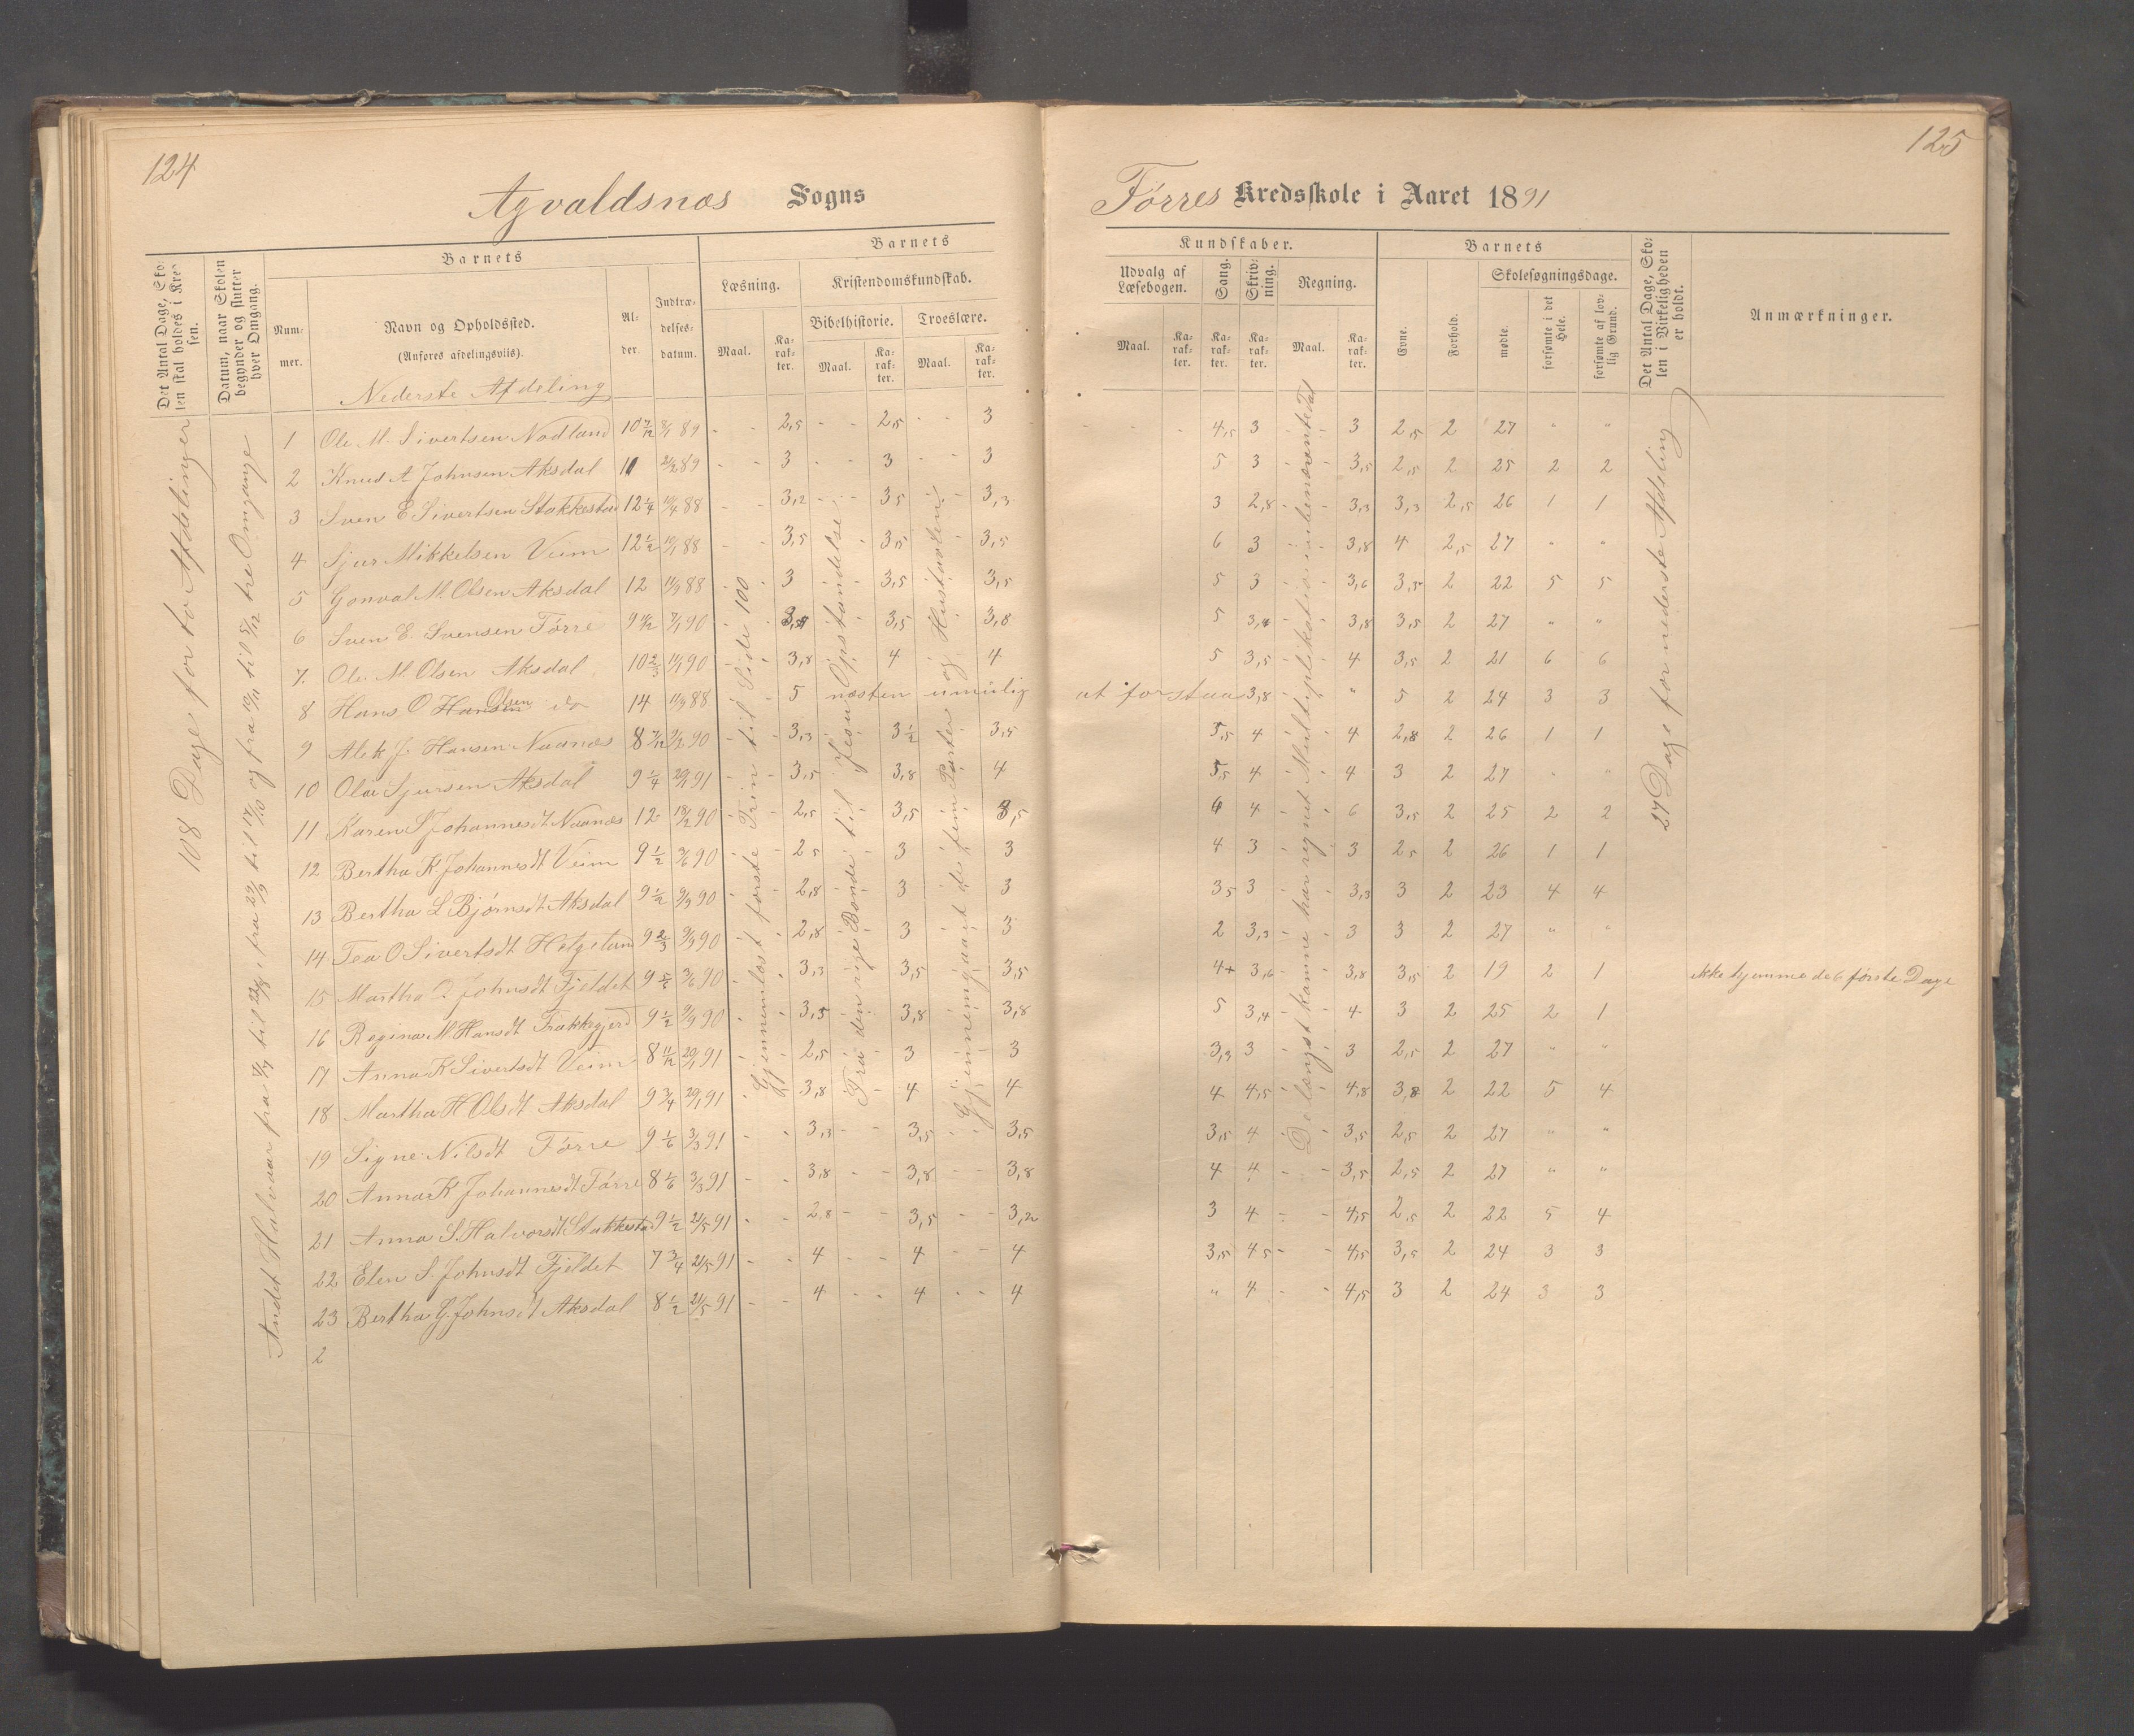 124
Agvaldsnæs Sogns
Det Antal Dage, Skolen skal holdes i Kredsen.
Datum, naar Skolen begynder og slutter hver Omgang.
Barnets
Nummer.
Navn og Opholdssted.
(Anføres afdelingsviis).
Alder.
Indtrædelsesdatum.
Barnets
Læsning.
Kristendomskundskab.
Bibelhistorie.
Troeslære.
Maal.
Karakter.
Maal.
Karakter.
Maal.
Karakter.
Nederste Afdeling
1 Ole M. Sivertsen Nodland 10 7/12 8/1 89 - - 2,5 - - 2,5 - - 3
2 Knud A Johnsen Aksdal 11 2/2 89 - - 3 - - 3 - - 3
3 Sven E Sivertsen Stakkestad 12 1/4 10/4 88 - - 3,2 - - 3,5 - - 3,3
4 Sjur Mikkelsen Veim 12 1/2 10/1 88 - - 3,5 - - 3,5 - - 3,5
5 Gonval M. Olsen Aksdal 12 11/9 88 - - 3 - - 3,5 - - 3,5
6 Sven E. Svensen Tørre 9 11/12 7/1 90 - - 3,4 - - 3,5 - - 3,8
7. Ole M. Olsen Aksdal 10 2/3 11/1 90 - - 3,8 - - 4 - - 4
8 Hans O Hansen Olsen do 14 11/9 88 - - 5 næsten umulig
9 Alek J. Hansen Naanes 8 7/12 9/2 90 - - 3,3 - - 3 1/2 - - 3,5
10 Ola Sjursen Aksdal 9 1/4 29/1 91 - - 3,5 - - 3,8 - - 4
11 Karen S Johannesdt Naanes 12 18/2 90 - - 2,5 - - 3,5 - - 3,5
12 Bertha K. Johannesdt Veim 9 1/2 3/6 90 - - 2,5 - - 3 - - 3
13 Bertha L Bjørnsdt Aksdal 9 1/2 9/9 90 - - 2,8 - - 3 - - 3
14 Tea O Sivertsdt Helgeland 9 2/3 9/9 90 - - 2,8 - - 3 - - 3
15 Martha Johnsdt Fjeldet 9 3/6 90 - - 3,3 - - 3,5 - - 3,5
16 Regina M Hansdt Frakkagjerd 9 1/2 9/9 90 - - 3,5 - - 3,8 - - 3,8
17 Anna K Sivertsdt Veim 8 11/12 29/1 91 - - 2,5 - - 3 - - 3
18 Martha H Olsdt Aksdal 9 3/4 29/1 91 - - 3,8 - - 4 - - 4
19 Signe Nilsdt Førre 9 1/6 3/3 91 - - 3,3 - - 3,5 - - 3,5
20 Anna K Johannesdt Førre 8 1/6 3/3 91 - - 3,8 - - 3,8 - - 3,8
21 Anna S. Halvorsdt Stakkestad 9 1/2 21/5 91 - - 2,8 - - 3,5 - - 3,2
22 Elen S. Johnsdt Fjeldet 7 3/4 21/5 91 - - 4 - - 4 - - 4
23 Bertha G. Johnsdt Aksdal 8 1/2 21/5 91 - - 4 - - 4 - - 4
2
108 Dage for to Afdelinger
Andet Halvaar fra til 22/8, fra 22/9 til 17/10 og fra til 5/12 tre Omgange
Gjennemlæst første Trin til Side 100
Fra den rige Bonde til Jesu Opstandelse
Gjennemgaaet de fem Parter og Hustavlen
125
Førres Kredsskole i Aaret 1891
Kundskaber.
Udvalg af Læsebogen.
Sang.
Skrivning.
Regning.
Maal.
Karakter.
Karakter.
Karakter.
Maal.
Karakter.
Barnets
Evne.
Forhold.
Skolesøgningsdage.
mødte.
forsømte i det Hele.
forsømte af lovlig Grund.
Det Antal Dage, Skolen i Virkeligheden er holdt.
Anmærkninger.
- - 4,5 3 - - 3 2,5 2 27 " "
5 3 - - 3,5 2,5 2 25 2 2
3 2,8 - - 3,3 3,3 2,5 26 1 1
6 3 - - 3,8 4 2,5 27 " "
5 3 - - 3,6 3,5 2 22 5 5
5 3,4 - - 3,8 3,5 2 27 " "
5 3,5 - - 4 3,5 2 21 6 6
at forstaa 3,8 - " 5 2 24 3 3
3,5 4 - - 4 2,8 2 26 1 1
5,5 4 - - 4 3 2 27 " "
6 4 - - 6 3,5 2 25 2 2
4 3 - - 3 2,5 2 26 1 1
3,5 3 - - 3,3 3 2 23 4 4
2 3,3 - - 3 3 2 27 " "
4+ 3,6 - - 3,8 3,5 2 19 2 1 ikke hjemme de 6 første Dage
5 3,4 - - 4 3 2 25 2 1
3,3 3 - - 3 2,5 2 27 " "
4 4,5 - - 4,8 3,8 2 22 5 4
3,5 4 - - 3,5 2,5 2 27 " "
4 4 - - 3,5 2,5 2 27 " "
3 4 - - 4,5 2,5 2 22 5 4
3,5 4,5 - - 4,5 3,5 2 24 3 3
" 4 - - 4,5 3 2 24 3 3
De længst komne har regnet Multiplikation i ubenævnte Tal
27 Dage for nederste Afdeling